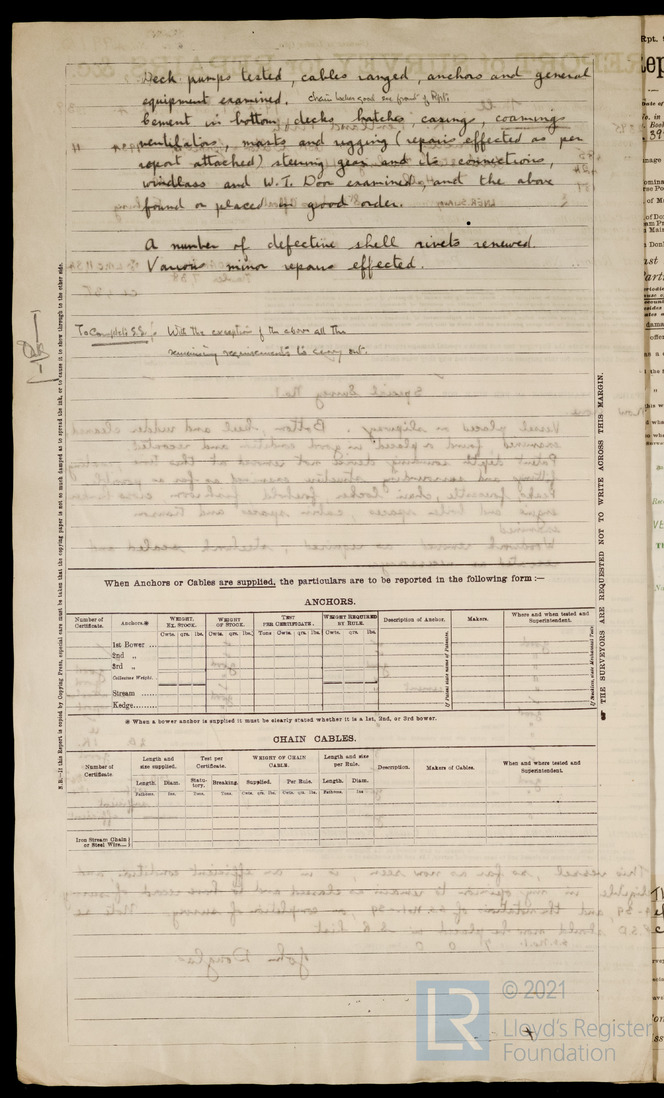 Deck pumps tested, cables ranged, anchors and general
equipment examined. Chain locker good see front of Rpt.
Cement in bottom, decks hatches, casings, coamings
ventilators, masts and rigging (repairs effected as per
report attached) steering gear and its connections,
windlass and W.T. Door examined, and the above
found or placed in good order.
A number of defective shell rivets renewed.
Various minor repairs effected.
To Complete S.S. :- With the exception of the above all the
remaining requirements to carry out.
N.B.—If this Report is copied by Copying Press, especial care must be taken that the copying paper is not so much damped as to spread the ink, or to cause it to show through to the other side.
THE SURVEYORS ARE REQUESTED NOT TO WRITE ACROSS THIS MARGIN.
When Anchors or Cables are supplied, the particulars are to be reported in the following form :—
ANCHORS.
Number of Certificate. Anchors.* WEIGHT, EX. STOCK. WEIGHT OF STOCK. TEST PER CERTIFICATE. WEIGHT REQUIRED BY RULE. Description of Anchor. Makers. Where and when tested and Superintendent.
Cwts. qrs. lbs. Cwts. qrs. lbs. Tons Cwts. qrs. lbs. Cwts. qrs. lbs.
1st Bower ...
2nd „
3rd „
Collective Weight.
Stream ......
Kedge.........
* When a bower anchor is supplied it must be clearly stated whether it is a 1st, 2nd, or 3rd bower.
CHAIN CABLES.
Number of Certificate. Length and size supplied. Test per Certificate. WEIGHT OF CHAIN CABLE. Length and size per Rule. Description. Makers of Cables. When and where tested and Superintendent.
Length. Diam. Statutory. Breaking. Supplied. Per Rule. Length. Diam.
Fathoms. Ins. Tons. Tons. Cwts. qrs. lbs. Cwts. qrs. lbs. Fathoms. Ins
Iron Stream Chain
or Steel Wire
© 2021
Lloyd's Register
Foundation